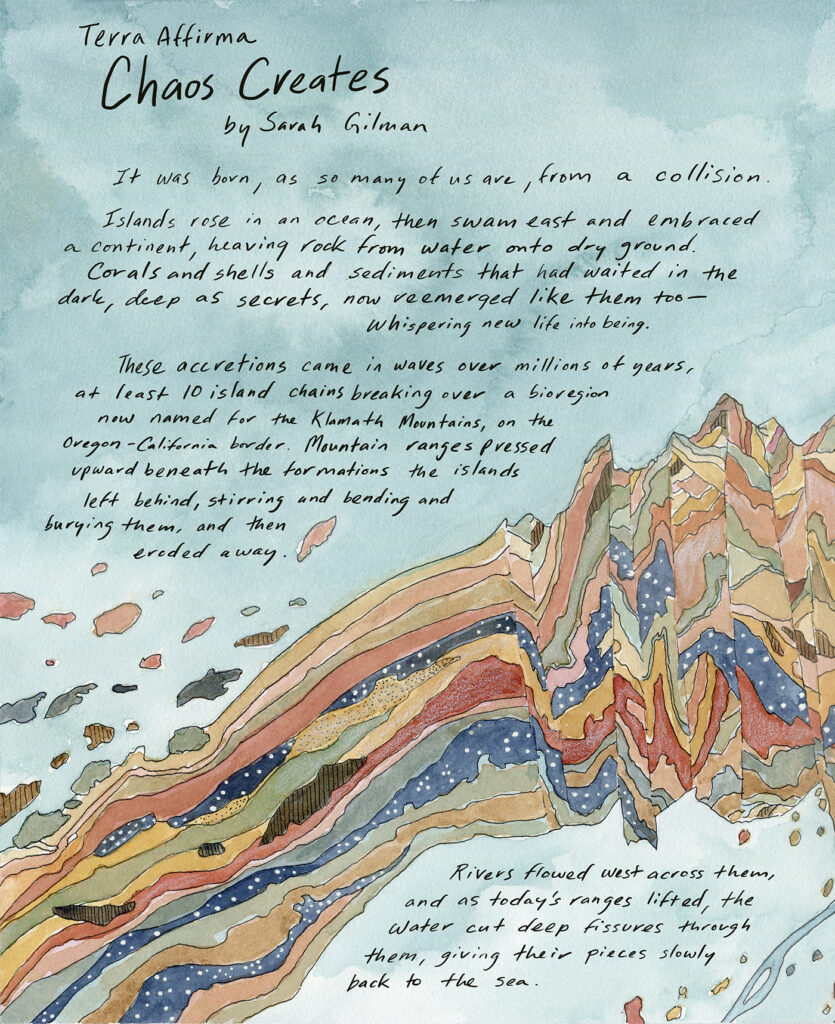 Terra Affirma
Chaos Creates
by Sarah Gilman
It was born, as so many of us are, from a collision.
Islands rose in an ocean, then swam east and embraced
a continent, heaving rock from water onto dry ground.
Corals and shells and sediments that had waited in the
dark, deep as secrets, now reemerged like them too—
whispering new life into being.
These accretions came in waves over millions of years,
at least 10 island chains breaking over a bioregion
now named for the Klamath Mountains, on the
Oregon-California border. Mountain ranges pressed
upward beneath the formations the islands
left behind, stirring and bending and
burying them, and then
eroded away.
Rivers flowed west across them,
and as today's ranges lifted, the
water cut deep fissures through
them, giving their pieces slowly
back to the sea.